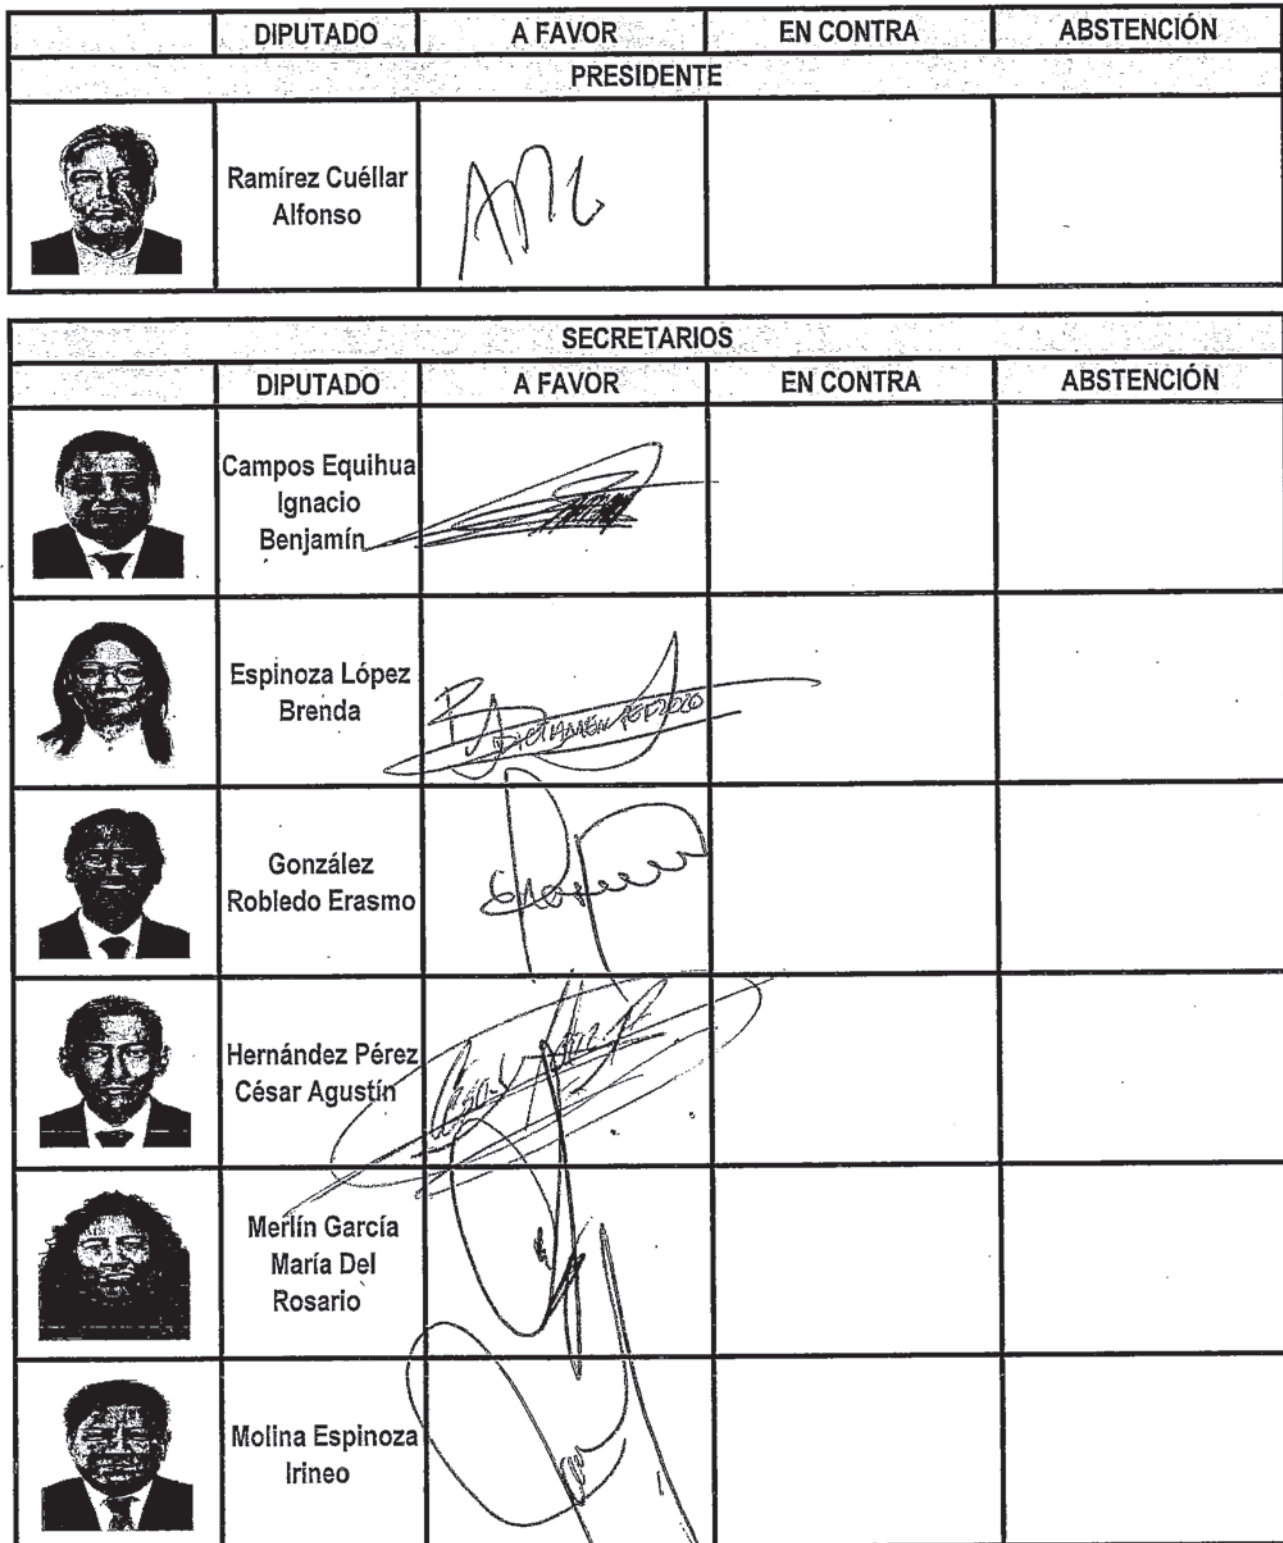 DIPUTADO A FAVOR EN CONTRA ABSTENCIÓN
PRESIDENTE
Ramírez Cuéllar
Alfonso
SECRETARIOS
DIPUTADO A FAVOR EN CONTRA ABSTENCIÓN
Campos Equihua
Ignacio
Benjamín
Espinoza López
Brenda
DICTAMEN PEF2020
González
Robledo Erasmo
Hernández Pérez
César Agustín
Merlín García
María Del
Rosario
Molina Espinoza
Irineo